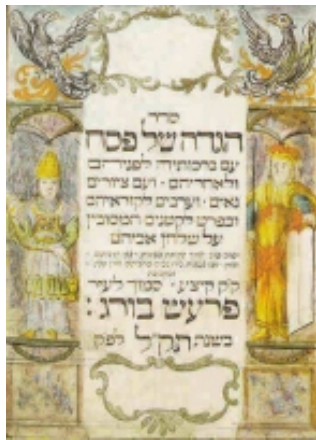 סדר
הגדה של פסח
עם ברכותיה לפניהם
ולאחריהם · ועם ציורים
נאים · וערבים לקוראיהם
ובפרט לקטנים המסובין
על שלחן אביהם
ק״ק קיצע · סמוך לעיר
פרעש בורג :
בשנת תק״ל לפק